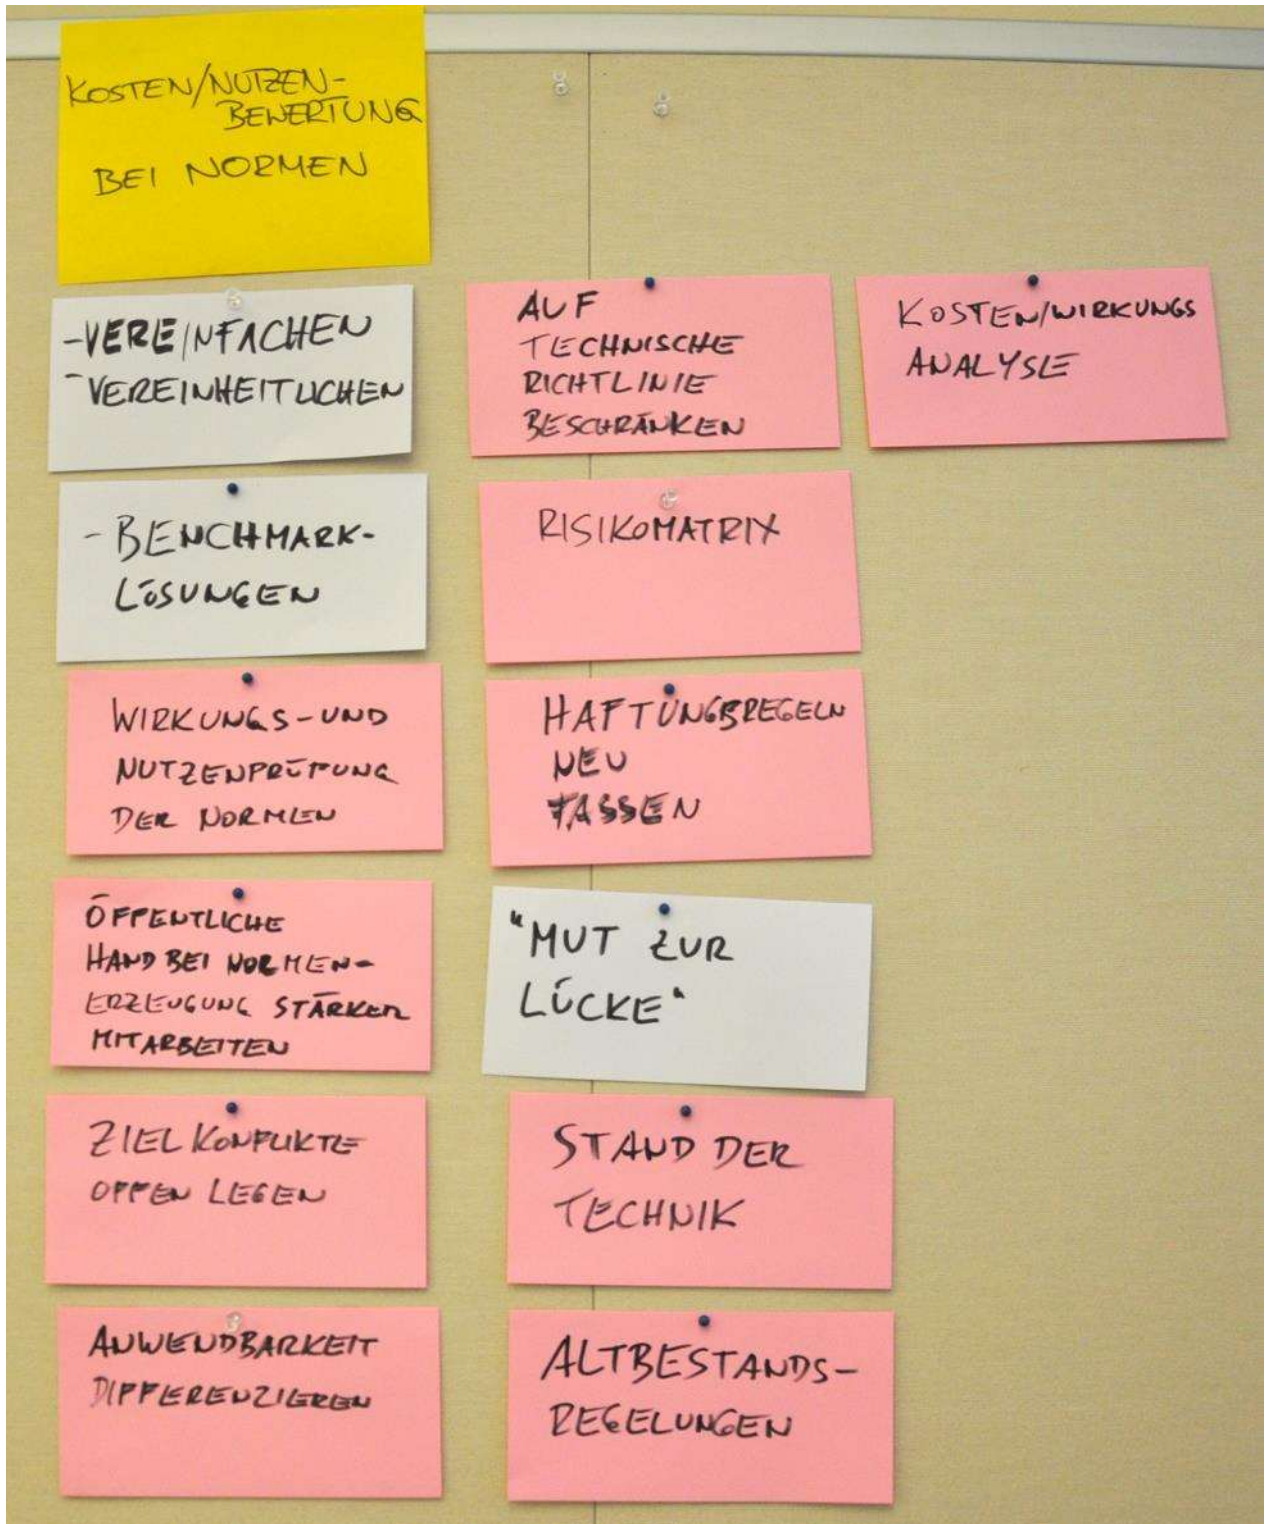 KOSTEN/NUTZEN-
BEWERTUNG
BEI NORMEN
-VEREINFACHEN
-VEREINHEITLICHEN
-BENCHMARK-
LÖSUNGEN
WIRKUNGS-UND
NUTZENPRÜFUNG
DER NORMEN
ÖFFENTLICHE
HAND BEI NORMEN-
ERZEUGUNG STÄRKER
MITARBEITEN
ZIELKONFLIKTE
OFFEN LEGEN
ANWENDBARKEIT
DIFFERENZIEREN
AUF
TECHNISCHE
RICHTLINIE
BESCHRÄNKEN
RISIKOMATRIX
HAFTUNGSREGELN
NEU
FASSEN
"MUT ZUR
LÜCKE"
STAND DER
TECHNIK
ALTBESTANDS-
REGELUNGEN
KOSTEN/WIRKUNGS
ANALYSE